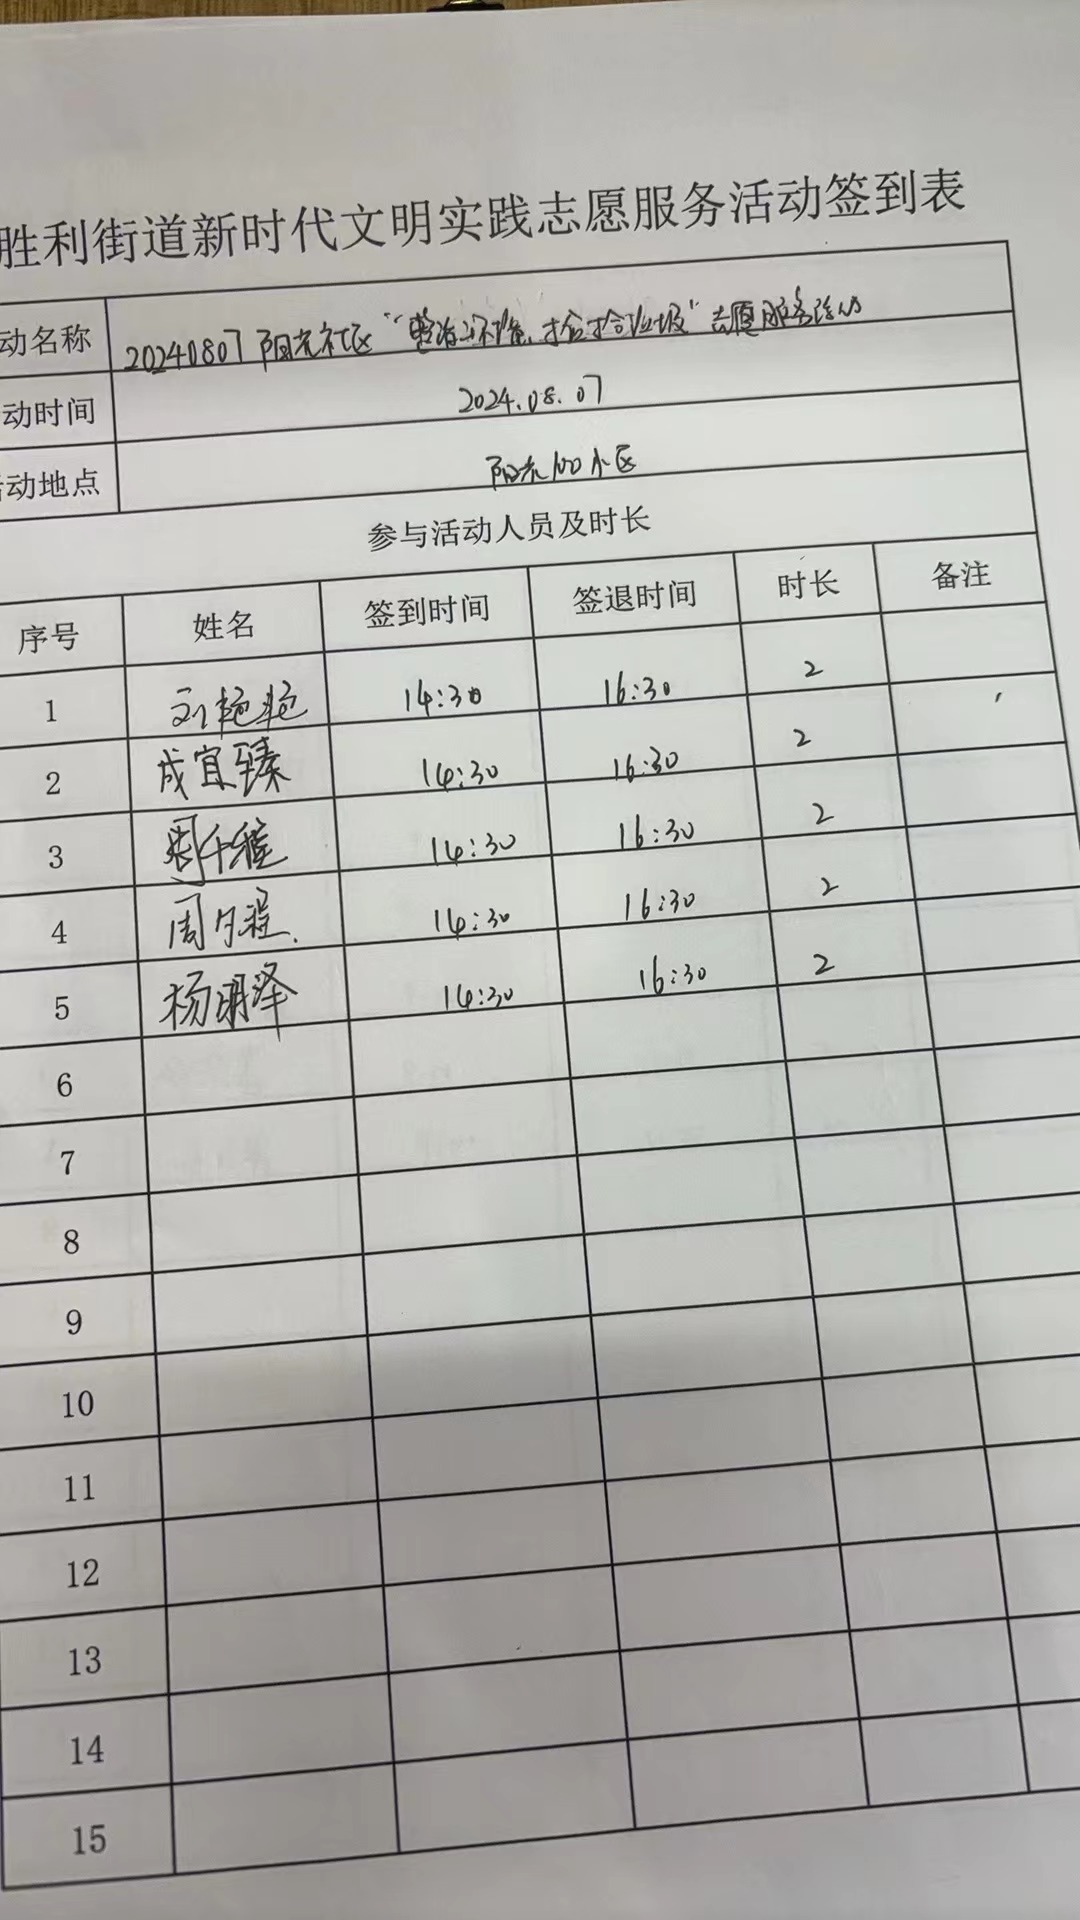 胜利街道新时代文明实践志愿服务活动签到表
动名称 20240807阳光社区“整治环境、捡拾垃圾”志愿服务活动
动时间 2024.08.07
活动地点 阳光100小区
参与活动人员及时长
序号 姓名 签到时间 签退时间 时长 备注
1 刘艳艳 14:30 16:30 2
2 成宜臻 14:30 16:30 2
3 14:30 16:30 2
4 周 14:30 16:30 2
5 杨明泽 14:30 16:30 2
6
7
8
9
10
11
12
13
14
15